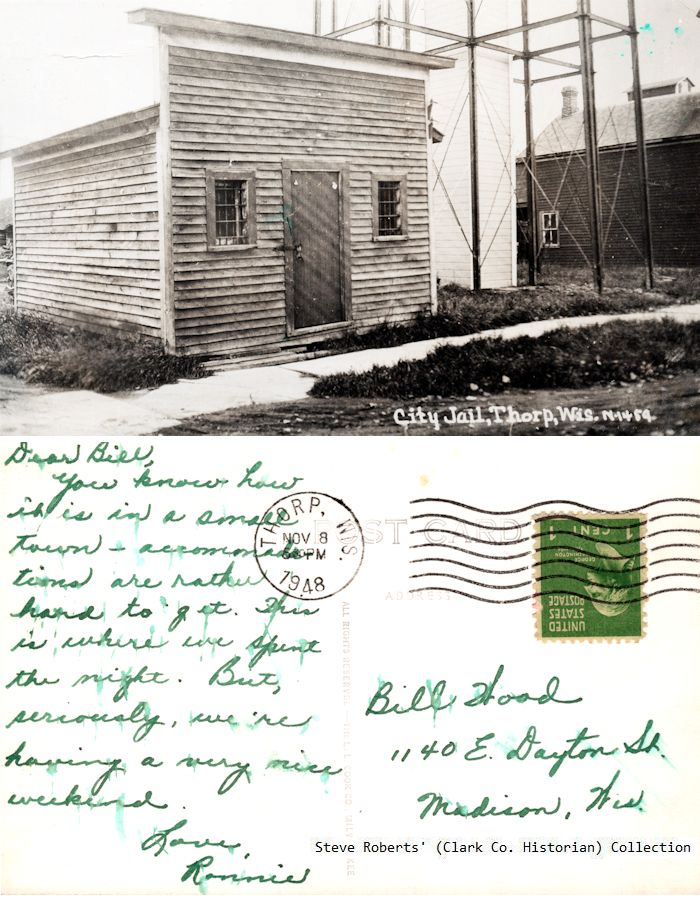 City Jail, Thorp, Wis. N-1459
Dear Bill,
You know how
it is in a small
town - accommoda
tions are rather
hard to get. This
is where we spent
the night. But,
seriously, we're
having a very nice
weekend.
Love,
Ronnie
THORP, WIS.
NOV 8
PM
1948
POST CARD
ADDRESS
1 CENT 1
GEORGE WASHINGTON
UNITED
STATES
POSTAGE
ALL RIGHTS RESERVED
Bill Wood
1140 E. Dayton St.
Madison, Wis.
Steve Roberts' (Clark Co. Historian) Collection